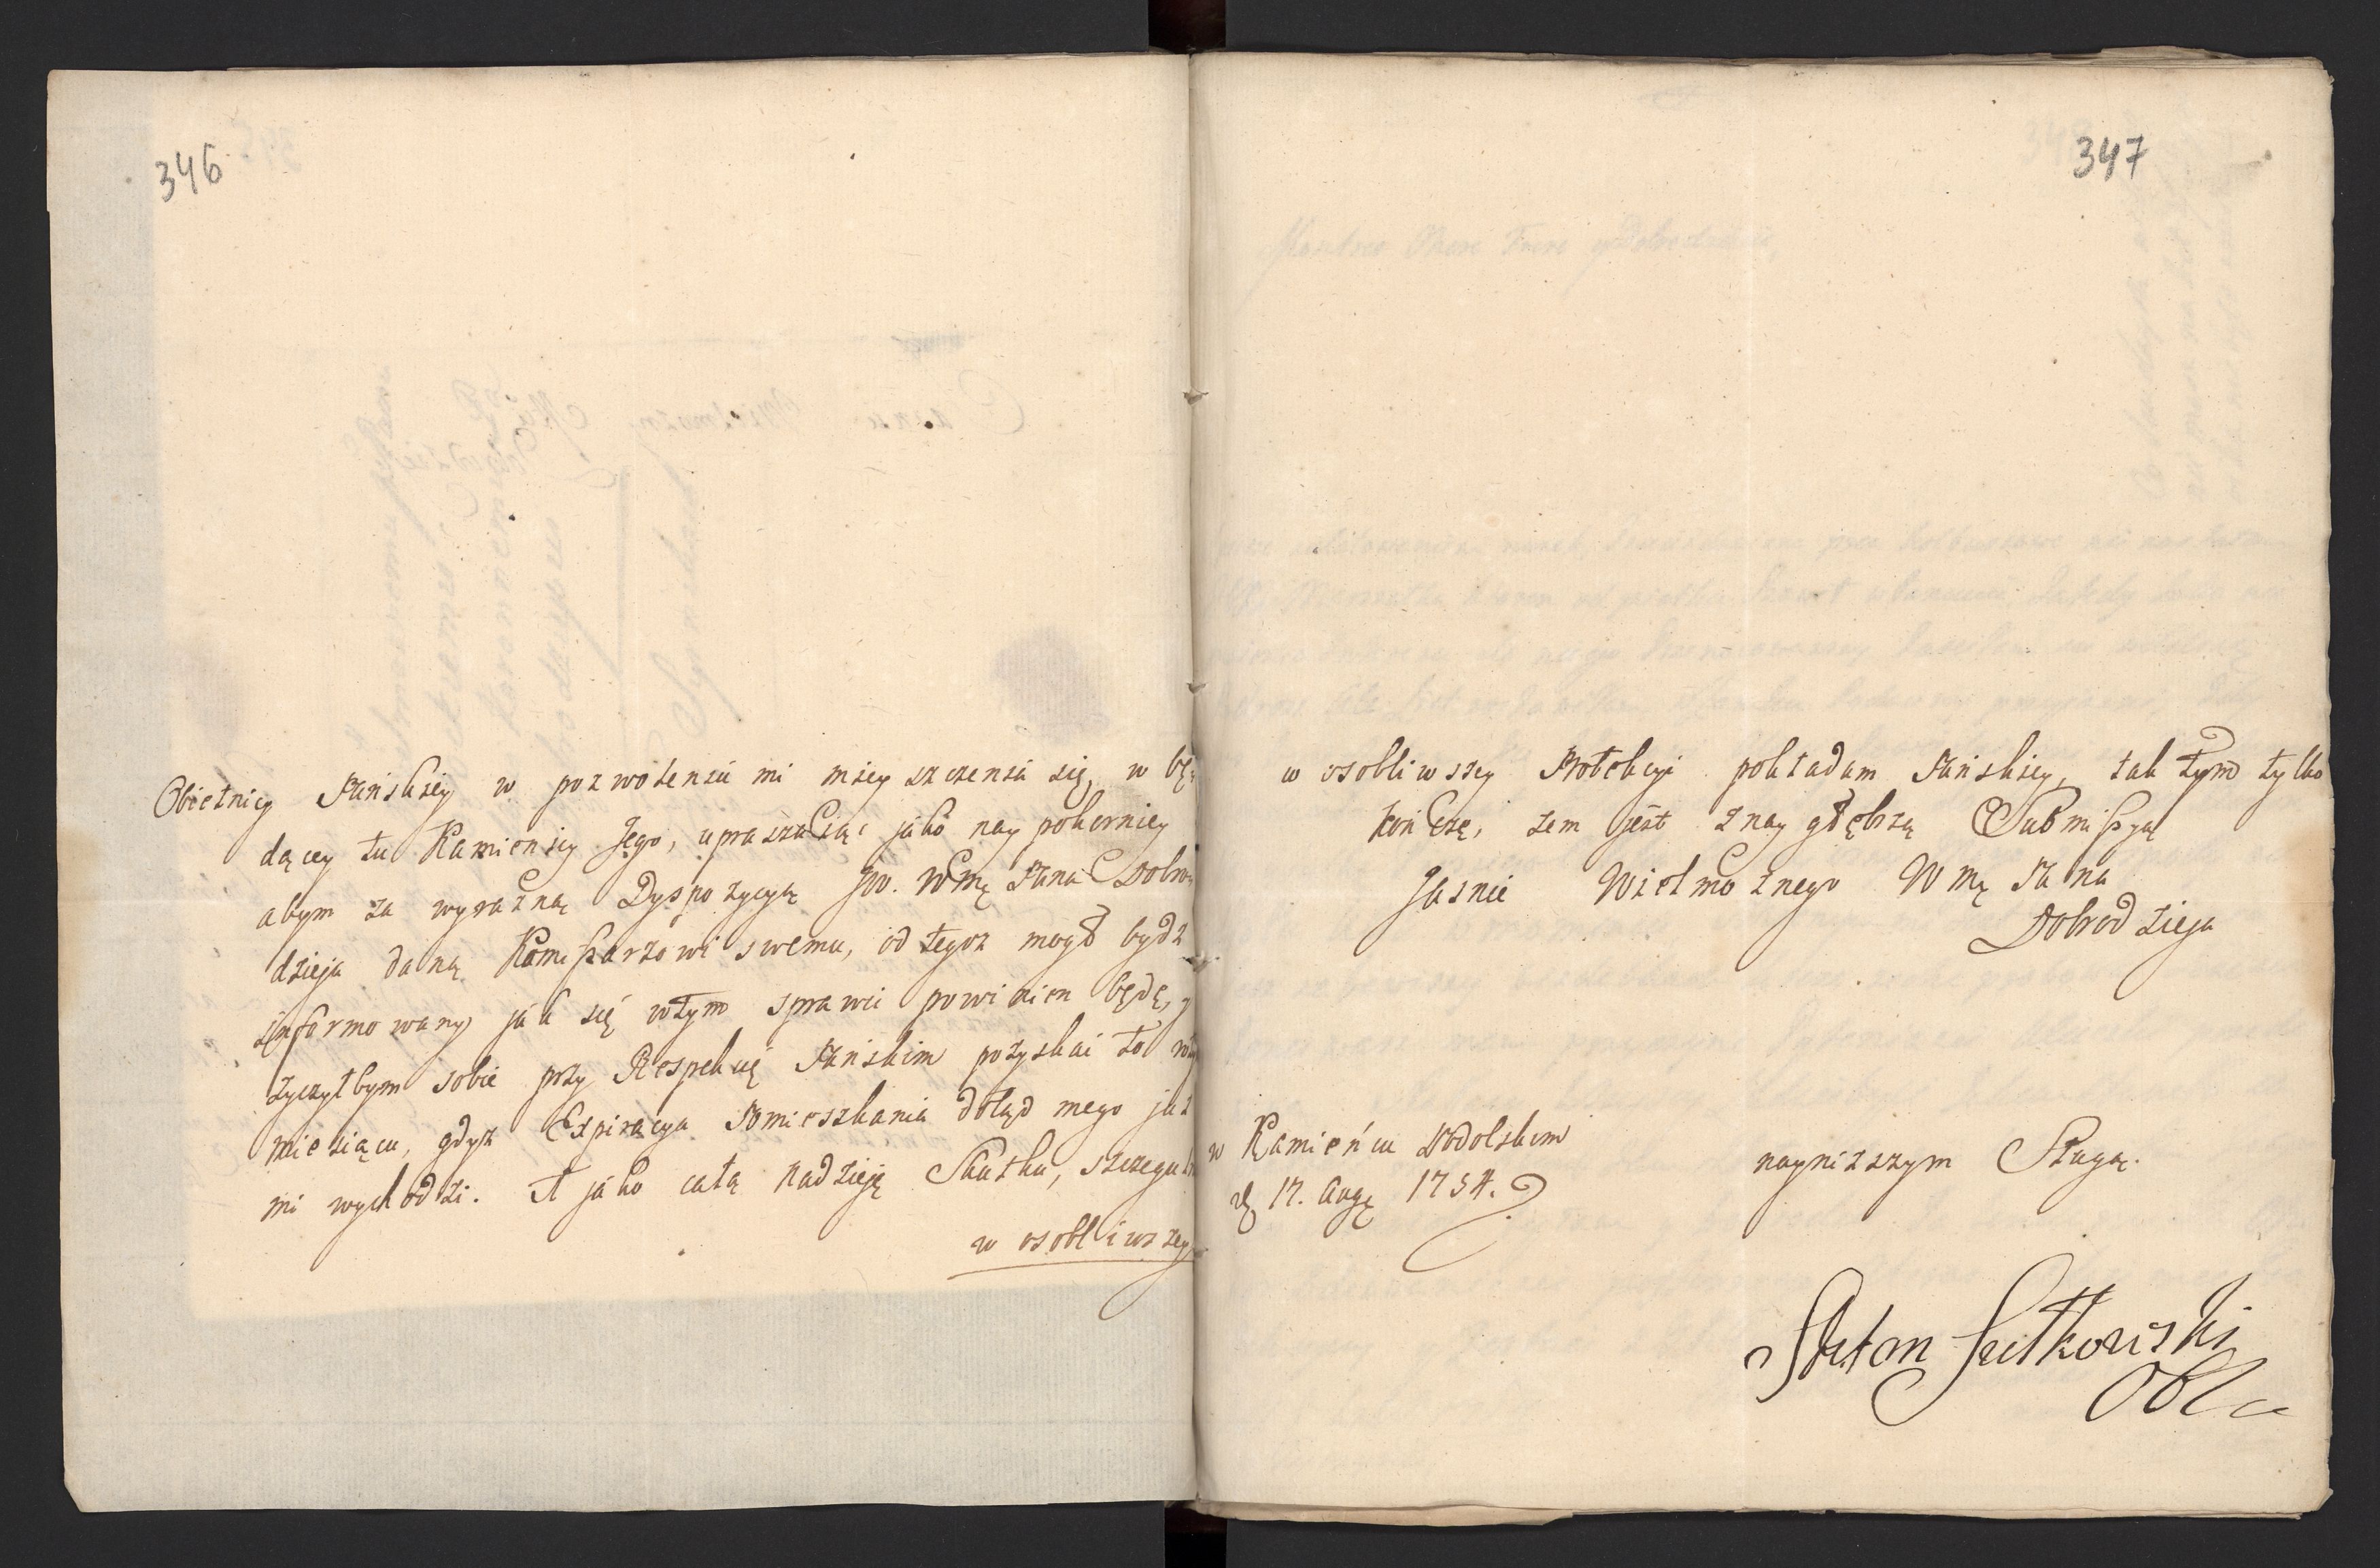 346
Obietnicy Pańskiey w pozwoleniu mi mieyszczenia się, w bę-
dącey tu Kamienicy Jego, upraszaiąc jako naypokorniey
abym za wyraźną Dyspozycyą JW. WMę Pana Dobro-
dzieja daną Komissarzowi swemu, od tegoż mógł bydź
informowany jak się w tym sprawić powinien będę, y
życzyłbym sobie przy Respekcie Pańskim pozyskać to
miesiącu, gdyż Expiracya Pomieszkania dotąd mego już
mi wychodzi. A jako całą nadzieję Skutku, szczegul
w osobliwszey
347
w osobliwszey Protekcyi pokładam Pańskiey, tak tym tylko
kończę, żem jest z naygłębszą Submissyą
Jasnie Wielmożnego WMę Pana
Dobrodzieja
w Kamieńcu Podolskim
d. 17. Augę 1754.
nayniższym Sługą.
Antoni Sutkowski